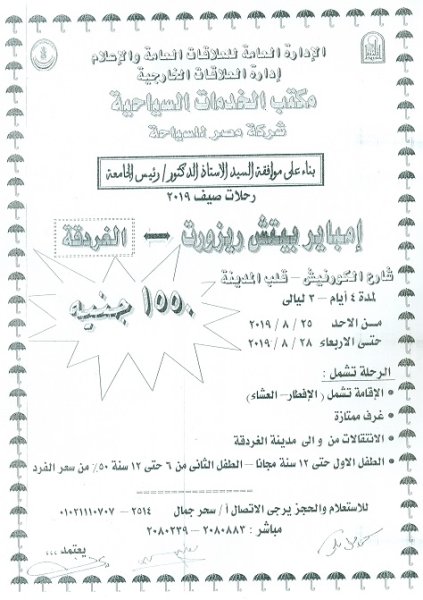 الإدارة العامة للعلاقات العامة والإعلام
إدارة العلاقات الخارجية
مكتب الخدمات السياحية
شركة مصر للسياحة
بناء على موافقة السيد الاستاذ الدكتور / رئيس الجامعة
رحلات صيف ٢٠١٩
إمباير بيتش ريزورت ← الغردقة
شارع الكورنيش – قلب المدينة
١٥٥٠ جنيه
لمدة ٤ أيام – ٣ ليالى
من الاحد ٢٥ / ٨ / ٢٠١٩
حتى الاربعاء ٢٨ / ٨ / ٢٠١٩
الرحلة تشمل :
• الإقامة تشمل (الإفطار – العشاء)
• غرف ممتازة
• الانتقالات من و الى مدينة الغردقة
• الطفل الاول حتى ١٢ سنة مجانا – الطفل الثانى من ٦ حتى ١٢ سنة ٥٠٪ من سعر الفرد
للاستعلام والحجز يرجى الاتصال أ / سحر جمال ٢٥١٤ – ٠١٠٢١١١٠٧٠٧
مباشر : ٢٠٨٠٨٨٣ – ٢٠٨٠٢٣٩
يعتمد ,,,